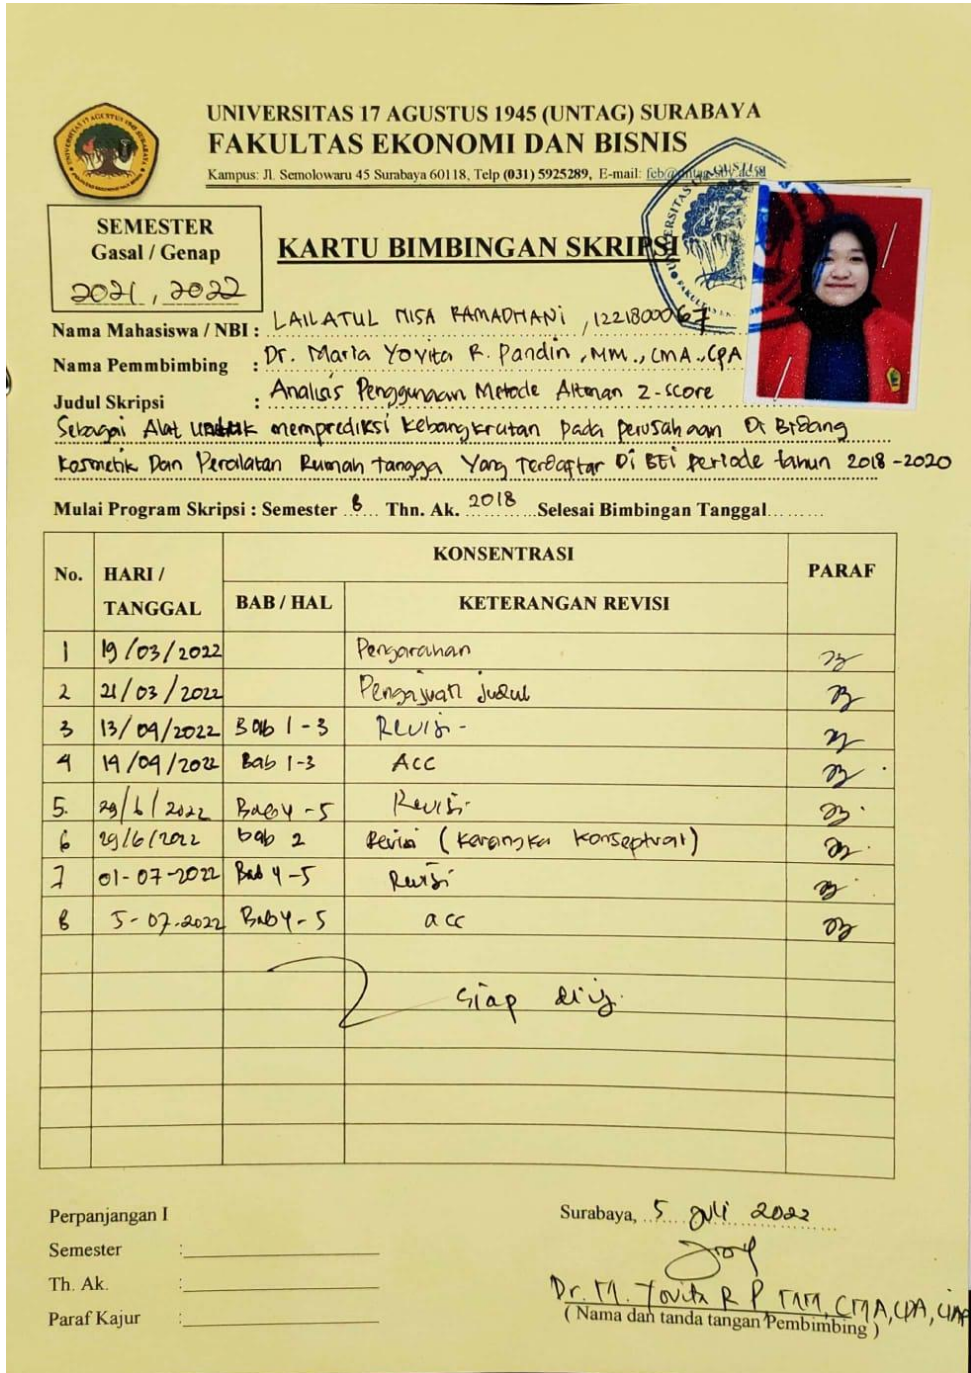 UNIVERSITAS 17 AGUSTUS 1945 (UNTAG) SURABAYA
FAKULTAS EKONOMI DAN BISNIS
Kampus: Jl. Semolowaru 45 Surabaya 60118, Telp (031) 5925289, E-mail: feb@untag-sby.ac.id
SEMESTER
Gasal / Genap
2021, 2022
KARTU BIMBINGAN SKRIPSI
Nama Mahasiswa / NBI : LAILATUL NISA RAMADHANI, 1221800067
Nama Pemmbimbing : Dr. Maria Yovita R. Pandin, MM., CMA., CPA
Judul Skripsi : Analisis Penggunaan Metode Altman Z-score
Sebagai Alat untuk memprediksi kebangkrutan pada perusahaan Di Bidang
Kosmetik Dan Peralatan Rumah tangga Yang Terdaftar Di BEI periode tahun 2018-2020
Mulai Program Skripsi : Semester 8 Thn. Ak. 2018 Selesai Bimbingan Tanggal
No. HARI / TANGGAL KONSENTRASI PARAF
BAB / HAL KETERANGAN REVISI
1 19/03/2022 Pengarahan
2 21/03/2022 Pengajuan Judul
3 13/04/2022 Bab 1-3 Revisi-
4 19/04/2022 Bab 1-3 Acc
5. 29/6/2022 Bab 4-5 Revisi
6 29/6/2022 bab 2 Revisi (Kerangka Konseptual)
7 01-07-2022 Bab 4-5 Revisi
8 5-07.2022 Bab 4-5 acc
Siap
Perpanjangan I
Semester :
Th. Ak. :
Paraf Kajur :
Surabaya, 5 Juli 2022
Dr. M. Yovita R P, MM, CMA, CPA,
( Nama dan tanda tangan Pembimbing )